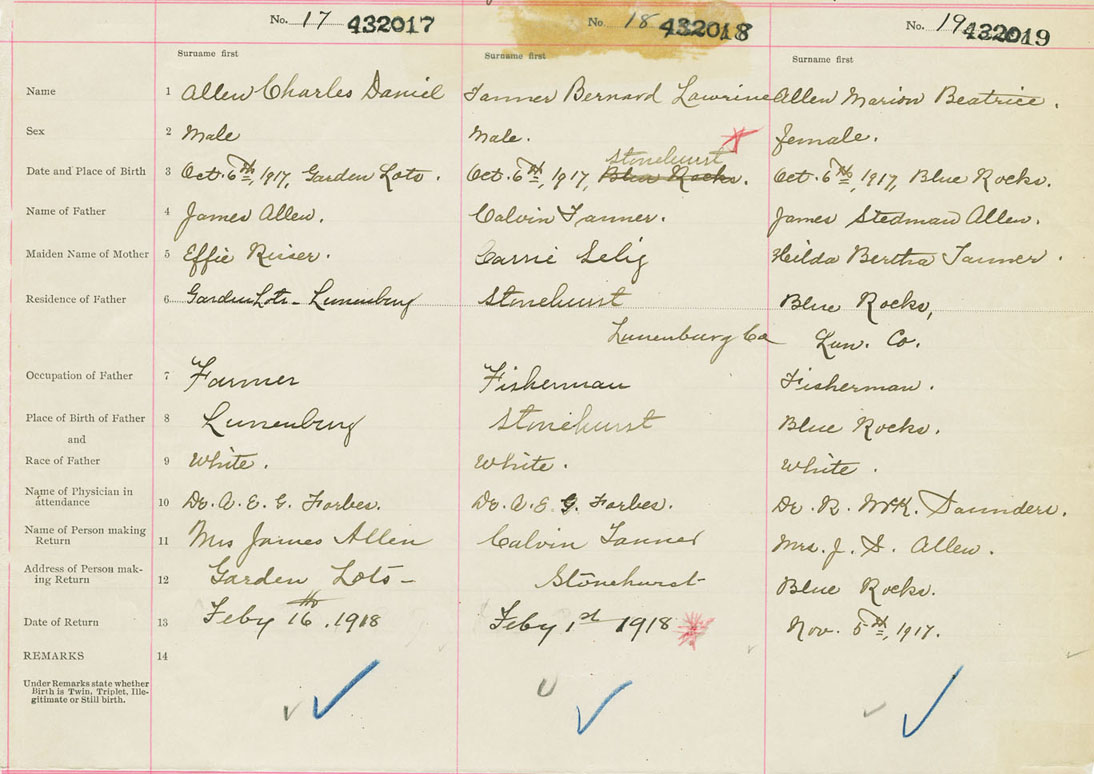 No. 17 432017 No. 18 432018 No. 19 432019
Surname first Surname first Surname first
Name 1 Allen Charles Daniel Tanner Bernard Lawrine Allen Marion Beatrice.
Sex 2 Male Male. female.
Stonehurst
Date and Place of Birth 3 Oct. 6th, 1917, Garden Lots. Oct. 6th, 1917, Blue Rocks. Oct. 6th, 1917, Blue Rocks.
Name of Father 4 James Allen. Calvin Tanner. James Stedman Allen.
Maiden Name of Mother 5 Effie Carrie Selig Hilda Bertha Tanner.
Residence of Father 6 Garden Lots - Lunenburg Stonehurst Blue Rocks,
Lunenburg Co Lun. Co.
Occupation of Father 7 Farmer Fisherman Fisherman.
Place of Birth of Father 8 Lunenburg Stonehurst Blue Rocks.
and
Race of Father 9 White. White. White.
Name of Physician in
attendance 10 Dr. A. E. G. Forbes. Dr. A. E. G. Forbes. Dr. R. McK. Saunders.
Name of Person making
Return 11 Mrs James Allen Calvin Tanner Mrs. J. S. Allen.
Address of Person mak-
ing Return 12 Garden Lots - Stonehurst Blue Rocks.
Date of Return 13 Feby 16th, 1918 Feby 1st 1918 Nov. 5th, 1917.
REMARKS 14
Under Remarks state whether
Birth is Twin, Triplet, Ille-
gitimate or Still birth.